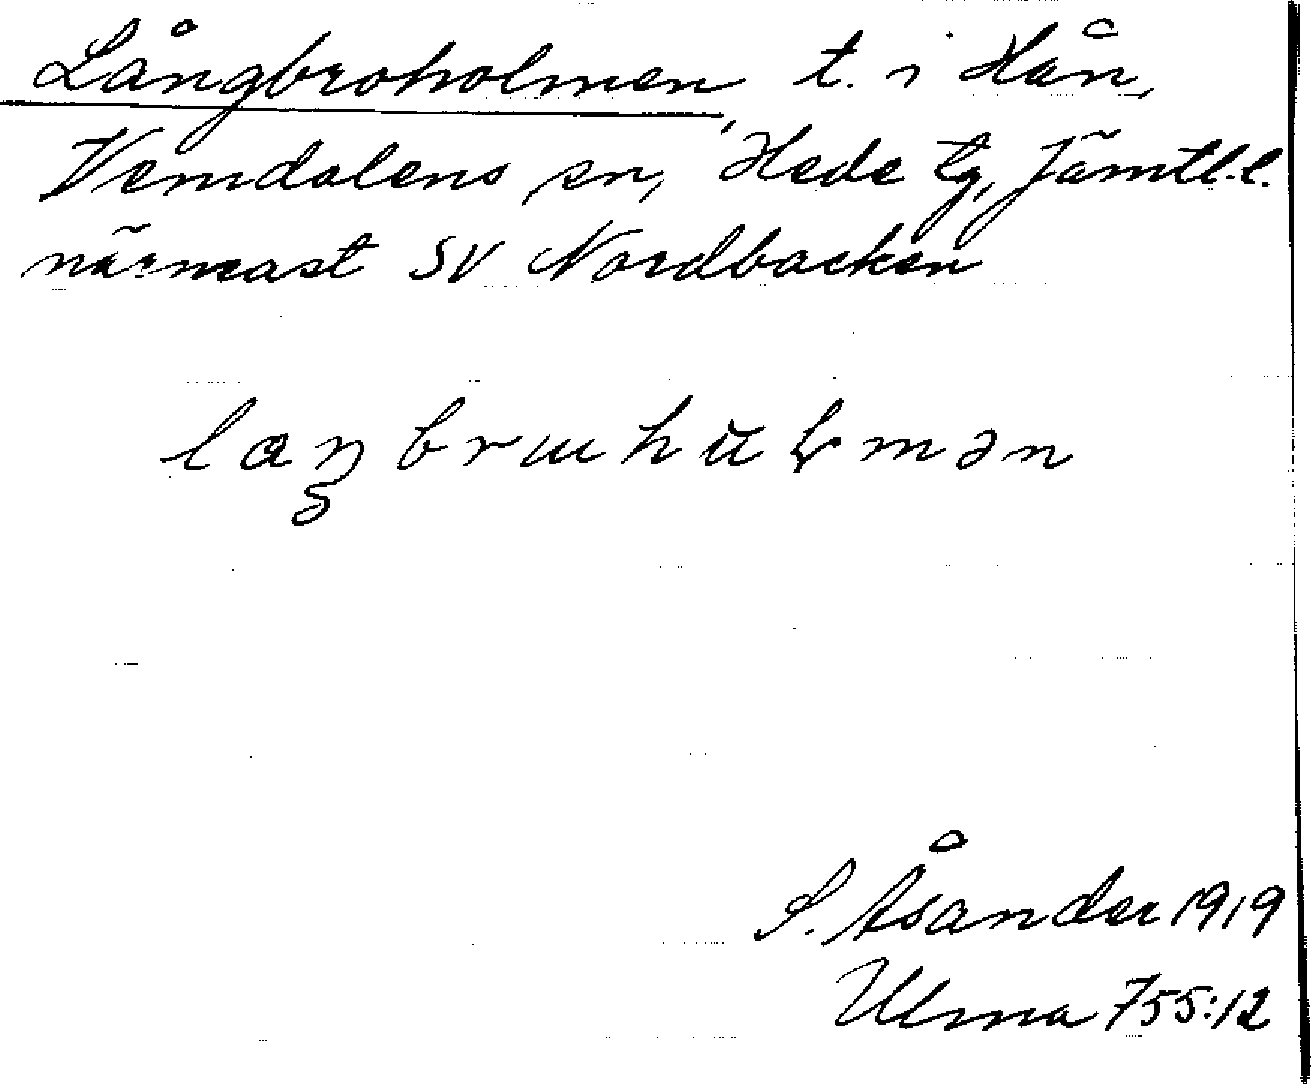 Långbroholmen, t. i Hån,
Vemdalens sn, Hede tg, Jämtl.l.
närmast SV Nordbacken
laŋbrɯhŭɽmən
S. Åsander 1919
Ulma 755:12